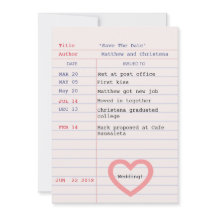 Title 'Save The Date'
Author Matthew and Christena
DATE ISSUED TO
MAR 20 Met at post office
MAR 20 First kiss
May 20 Matthew got new job
JUL 14 Moved in together
DEC 13 Christena graduated
college
FEB 14 Mark proposed at Cafe
Wedding!
JUN 22 2019